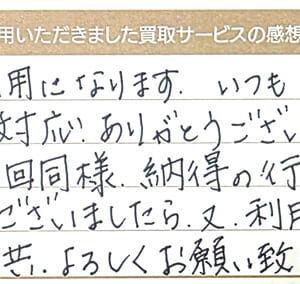 用いただきました買取サービスの感想
用になります. いつも
対応. ありがとうござい
回同様. 納得の行
ございましたら. 又. 利用
共. よろしくお願い致